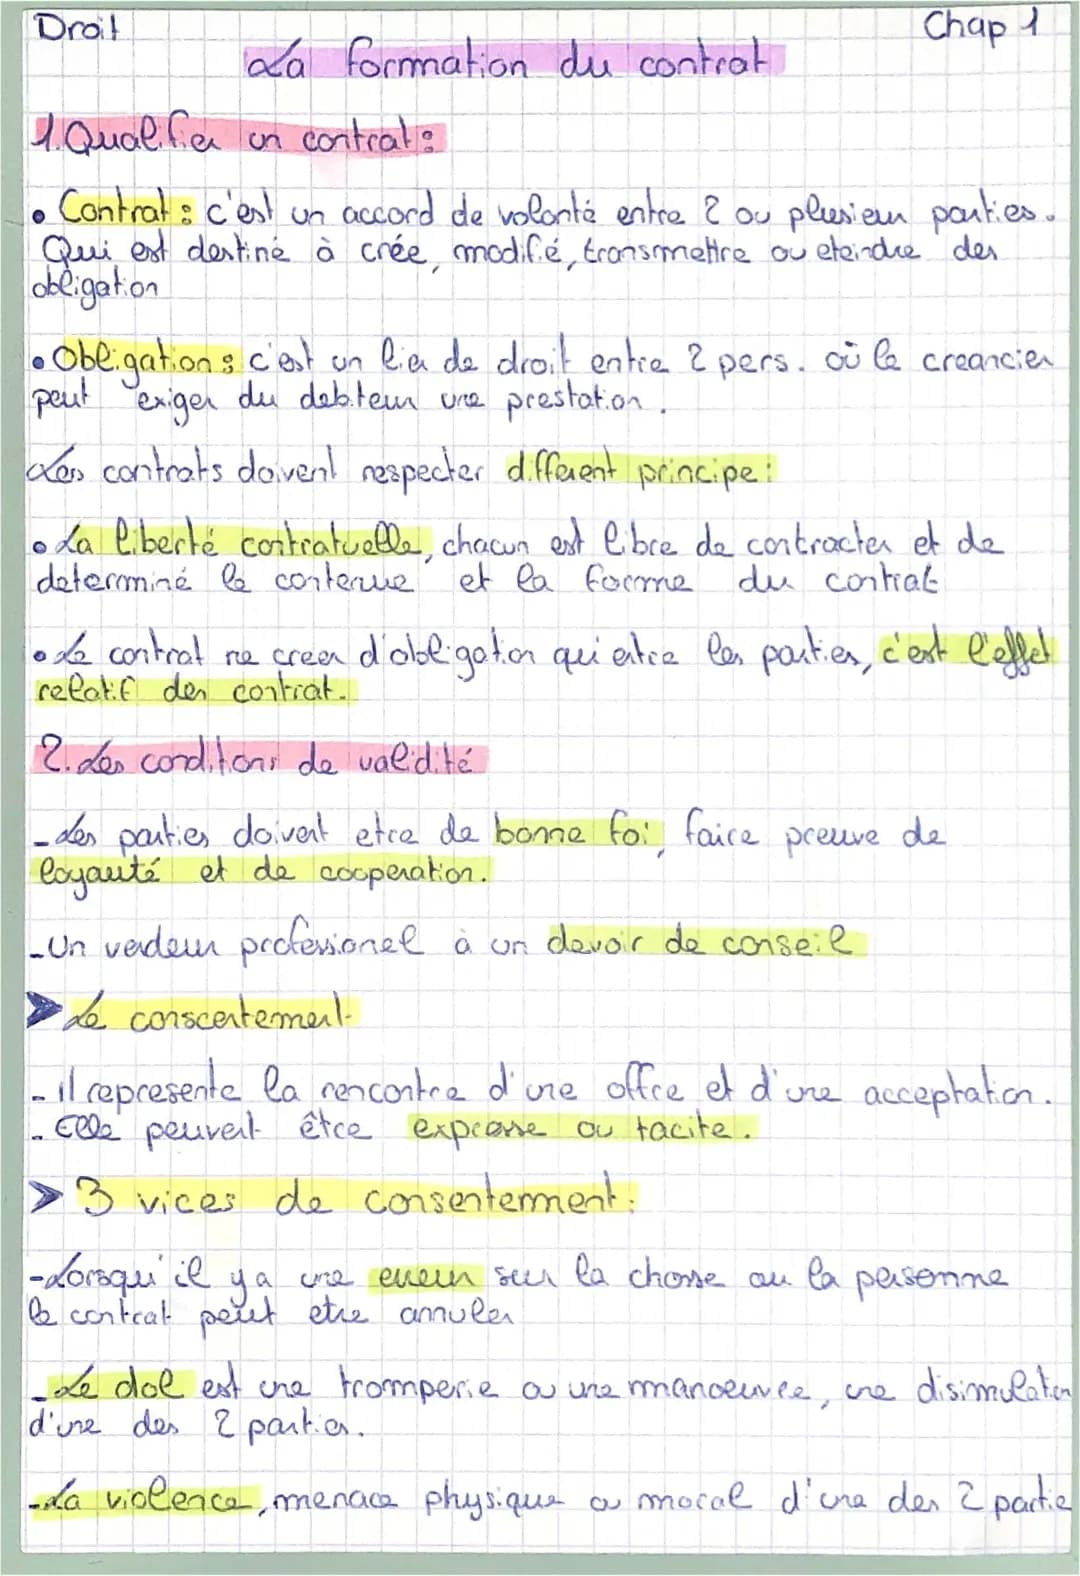 Droit
Chap 1
La formation du contrat
1. Qualifier un contrat :
• Contrat : c'est un accord de volonté entre 2 ou plusieur parties.
Qui est destiné à crée, modifié, transmettre ou eteindre des
obligation
• Obligation : c'est un lien de droit entre 2 pers. où le creancier
peut exiger du debiteur une prestation.
Les contrats doivent respecter différent principe :
• La liberté contratuelle, chacun est libre de contracter et de
determiné le contenue et la forme du contrat
• Le contrat ne creer d'obligation qui entre les parties, c'est l'effet
relatif des contrat.
2. Les conditions de validité
- Les parties doivent etre de bonne foi, faire preuve de
loyauté et de cooperation.
- Un vendeur professionel à un devoir de conseil
➤ Le conscentement
- il represente la rencontre d'une offre et d'une acceptation.
- Elle peuvent être expresse ou tacite.
➤ 3 vices de consentement :
- Lorsqu'il y a une erreur sur la chosse ou la personne
le contrat peut etre annuler
- Le dol est une tromperie ou une manoeuvre, une disimulation
d'une des 2 parties.
- La violence, menace physique ou moral d'une des 2 partie